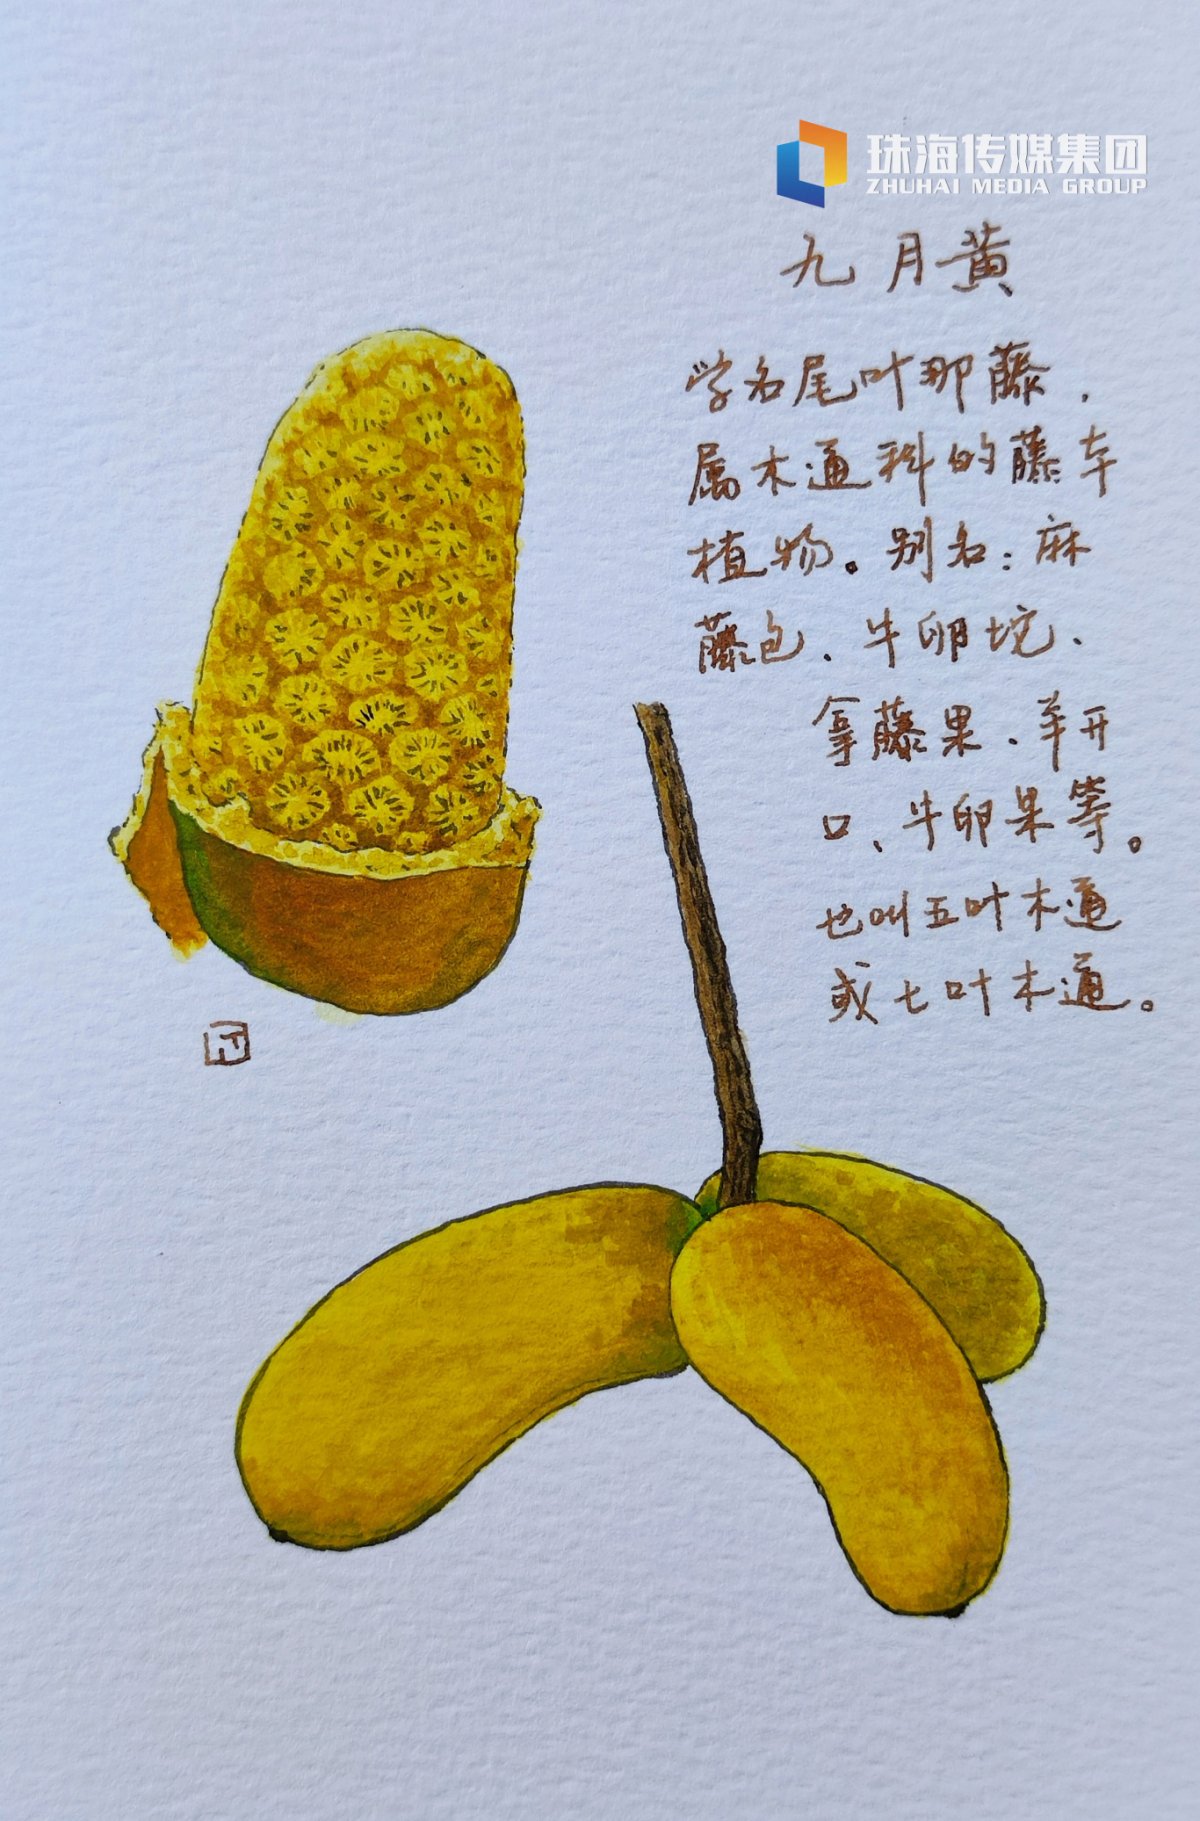 珠海传媒集团
ZHUHAI MEDIA GROUP
九月黄
学名尾叶那藤，
属木通科的藤本
植物。别名：麻
藤包、牛卵坨、
拿藤果、羊开
口、牛卵果等。
也叫五叶木通
或七叶木通。